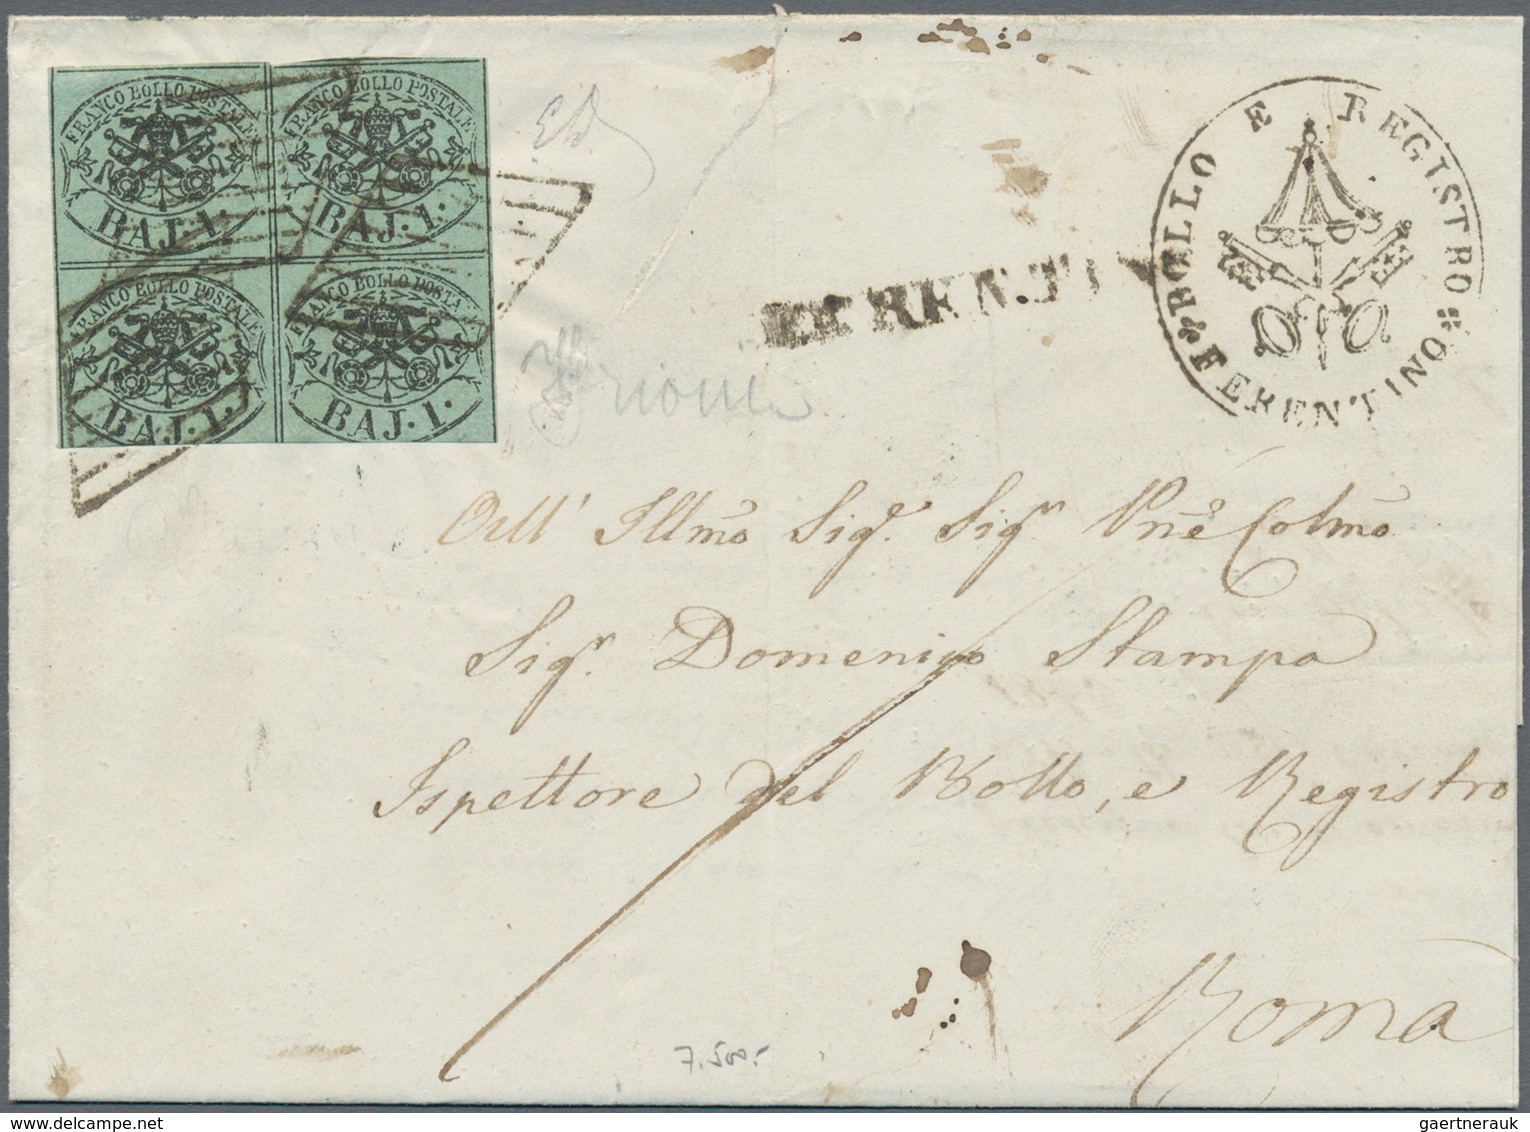 FRANCO BOLLO POSTALE
BAJ. 1.
FRANCO BOLLO POSTALE
BAJ. 1.
FRANCO BOLLO POSTALE
BAJ. 1.
FRANCO BOLLO POSTALE
BAJ. 1.
BOLLO E REGISTRO
FERENTINO
All' Illmo Sigr. Sigr Pne Colmo
Sigr. Domenico Stampa
Ispettore del Bollo, e Registro
Roma
7.500.-
delcampe.net
gaertnerauk